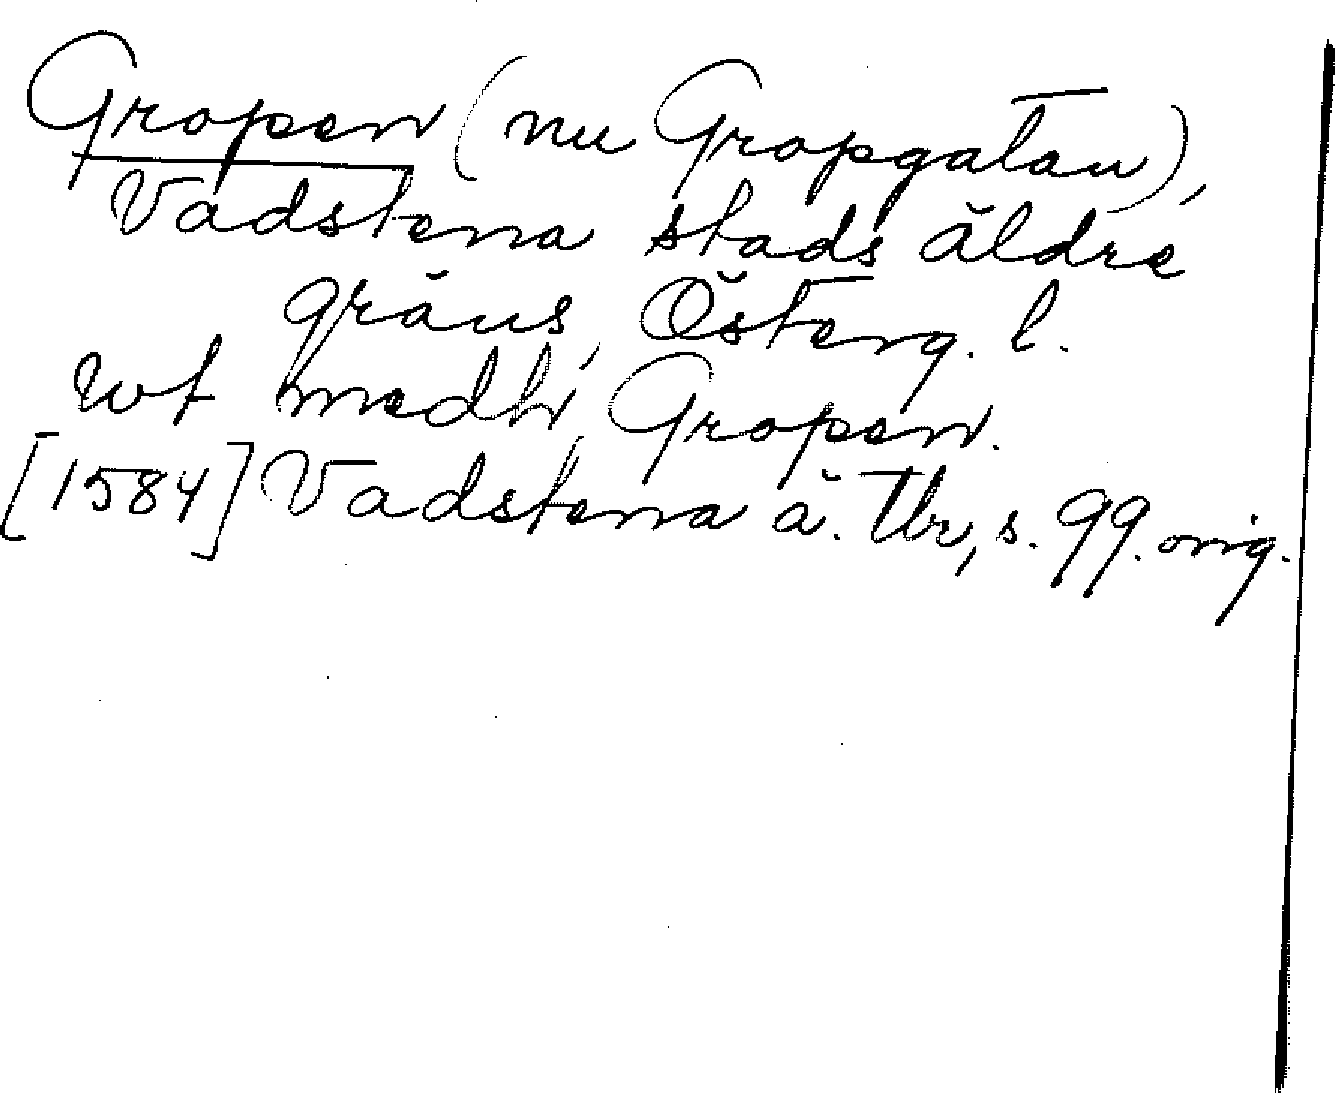 Gropen (nu Gropgatan),
Vadstena stads äldre
gräns, Österg. l.
wt medh Gropen.
[1584] Vadstena ä. Tbr, s. 99. orig.